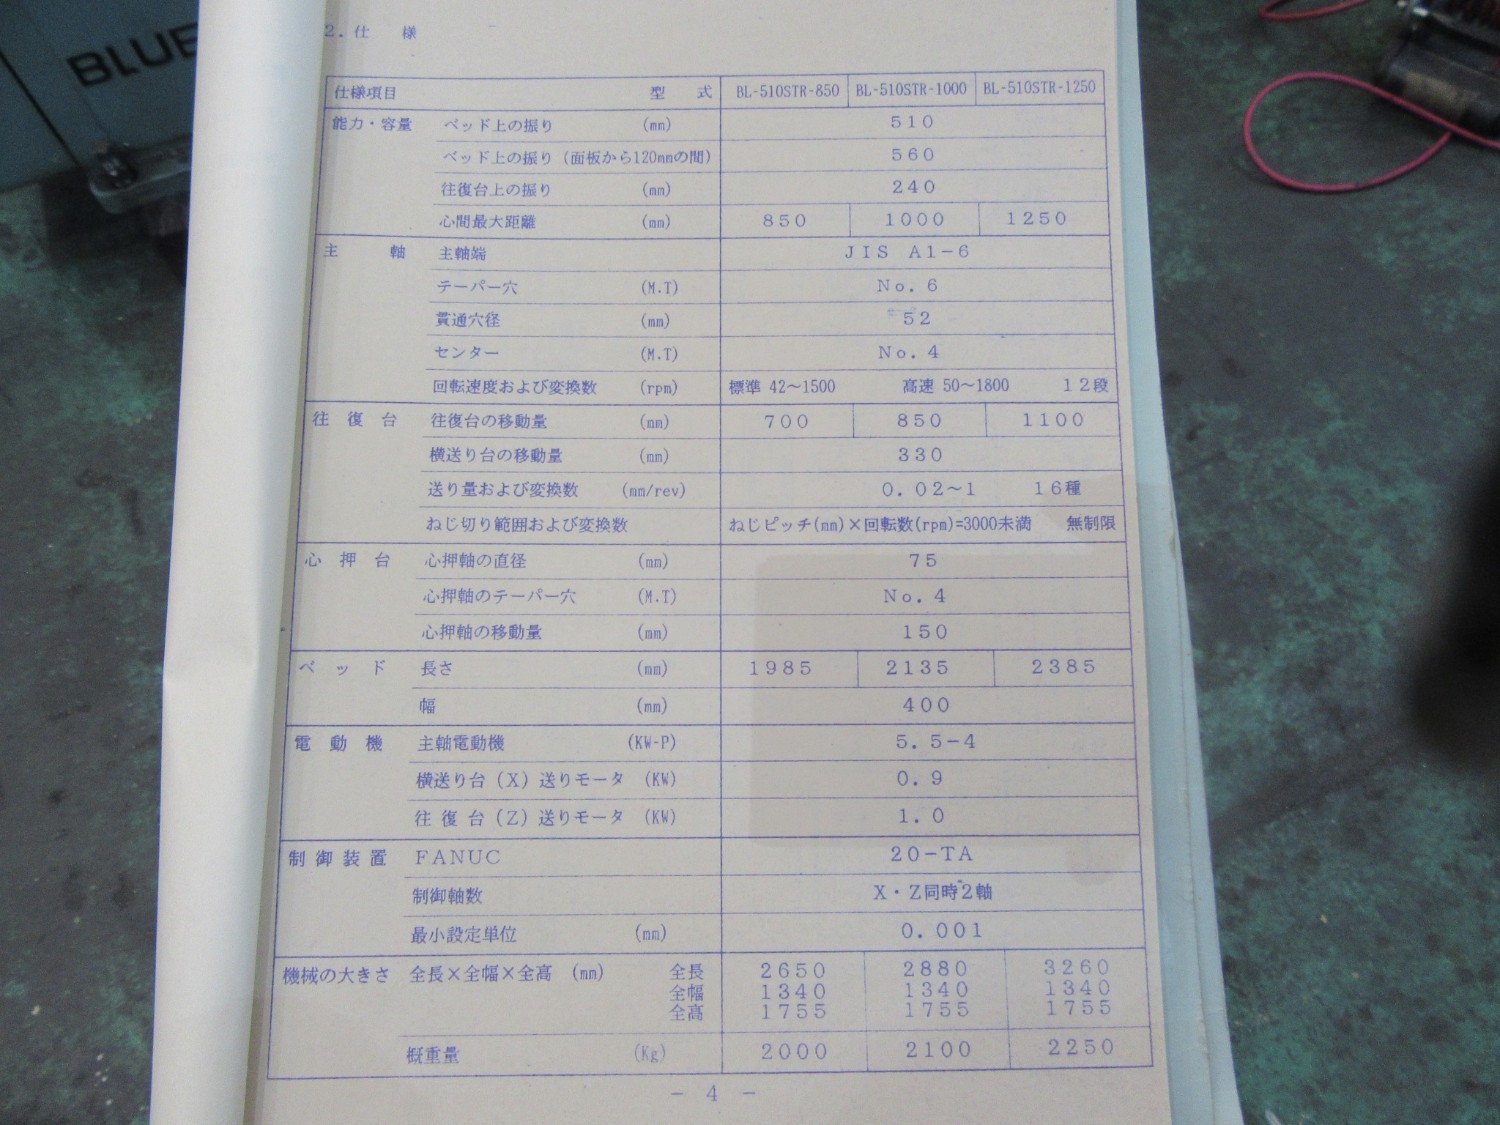 BLUE
2.仕 様
仕様項目 型 式 BL-510STR-850 BL-510STR-1000 BL-510STR-1250
能力・容量 ベッド上の振り (mm) 510
ベッド上の振り (面板から120mmの間) 560
往復台上の振り (mm) 240
心間最大距離 (mm) 850 1000 1250
主 軸 主軸端 JIS A1-6
テーパー穴 (M.T) No.6
貫通穴径 (mm) 52
センター (M.T) No.4
回転速度および変換数 (rpm) 標準 42～1500 高速 50～1800 12段
往復台 往復台の移動量 (mm) 700 850 1100
横送り台の移動量 (mm) 330
送り量および変換数 (mm/rev) 0.02～1 16種
ねじ切り範囲および変換数 ねじピッチ(mm)×回転数(rpm)=3000未満 無制限
心押台 心押軸の直径 (mm) 75
心押軸のテーパー穴 (M.T) No.4
心押軸の移動量 (mm) 150
ベッド 長さ (mm) 1985 2135 2385
幅 (mm) 400
電動機 主軸電動機 (KW-P) 5.5-4
横送り台(X)送りモータ (KW) 0.9
往復台(Z)送りモータ (KW) 1.0
制御装置 FANUC 20-TA
制御軸数 X・Z同時2軸
最小設定単位 (mm) 0.001
機械の大きさ 全長×全幅×全高 (mm) 全長 2650 2880 3260
全幅 1340 1340 1340
全高 1755 1755 1755
概重量 (Kg) 2000 2100 2250
- 4 -